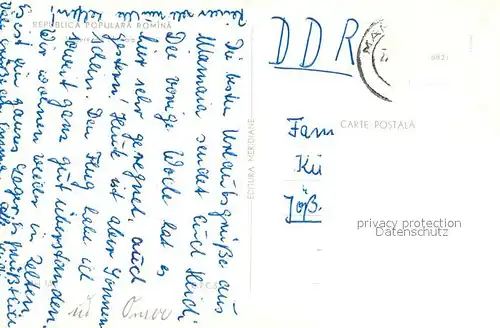 REPUBLICA POPULARA ROMÎNĂ
Die besten Urlaubsgrüße aus
Mamaia sendet Euch Heidi.
Die vorige Woche hat es
hier sehr geregnet, auch
gestern, heute ist aber Sonnen
schein. Den Flug habe ich
soweit ganz gut überstanden.
Wir wohnen wieder in Zelten.
Es ist ein ganzes Lager.
EDITURA MERIDIANE
DDR
CARTE POSTALA
Fam
Kü
Jöß.
privacy protection
Datenschutz